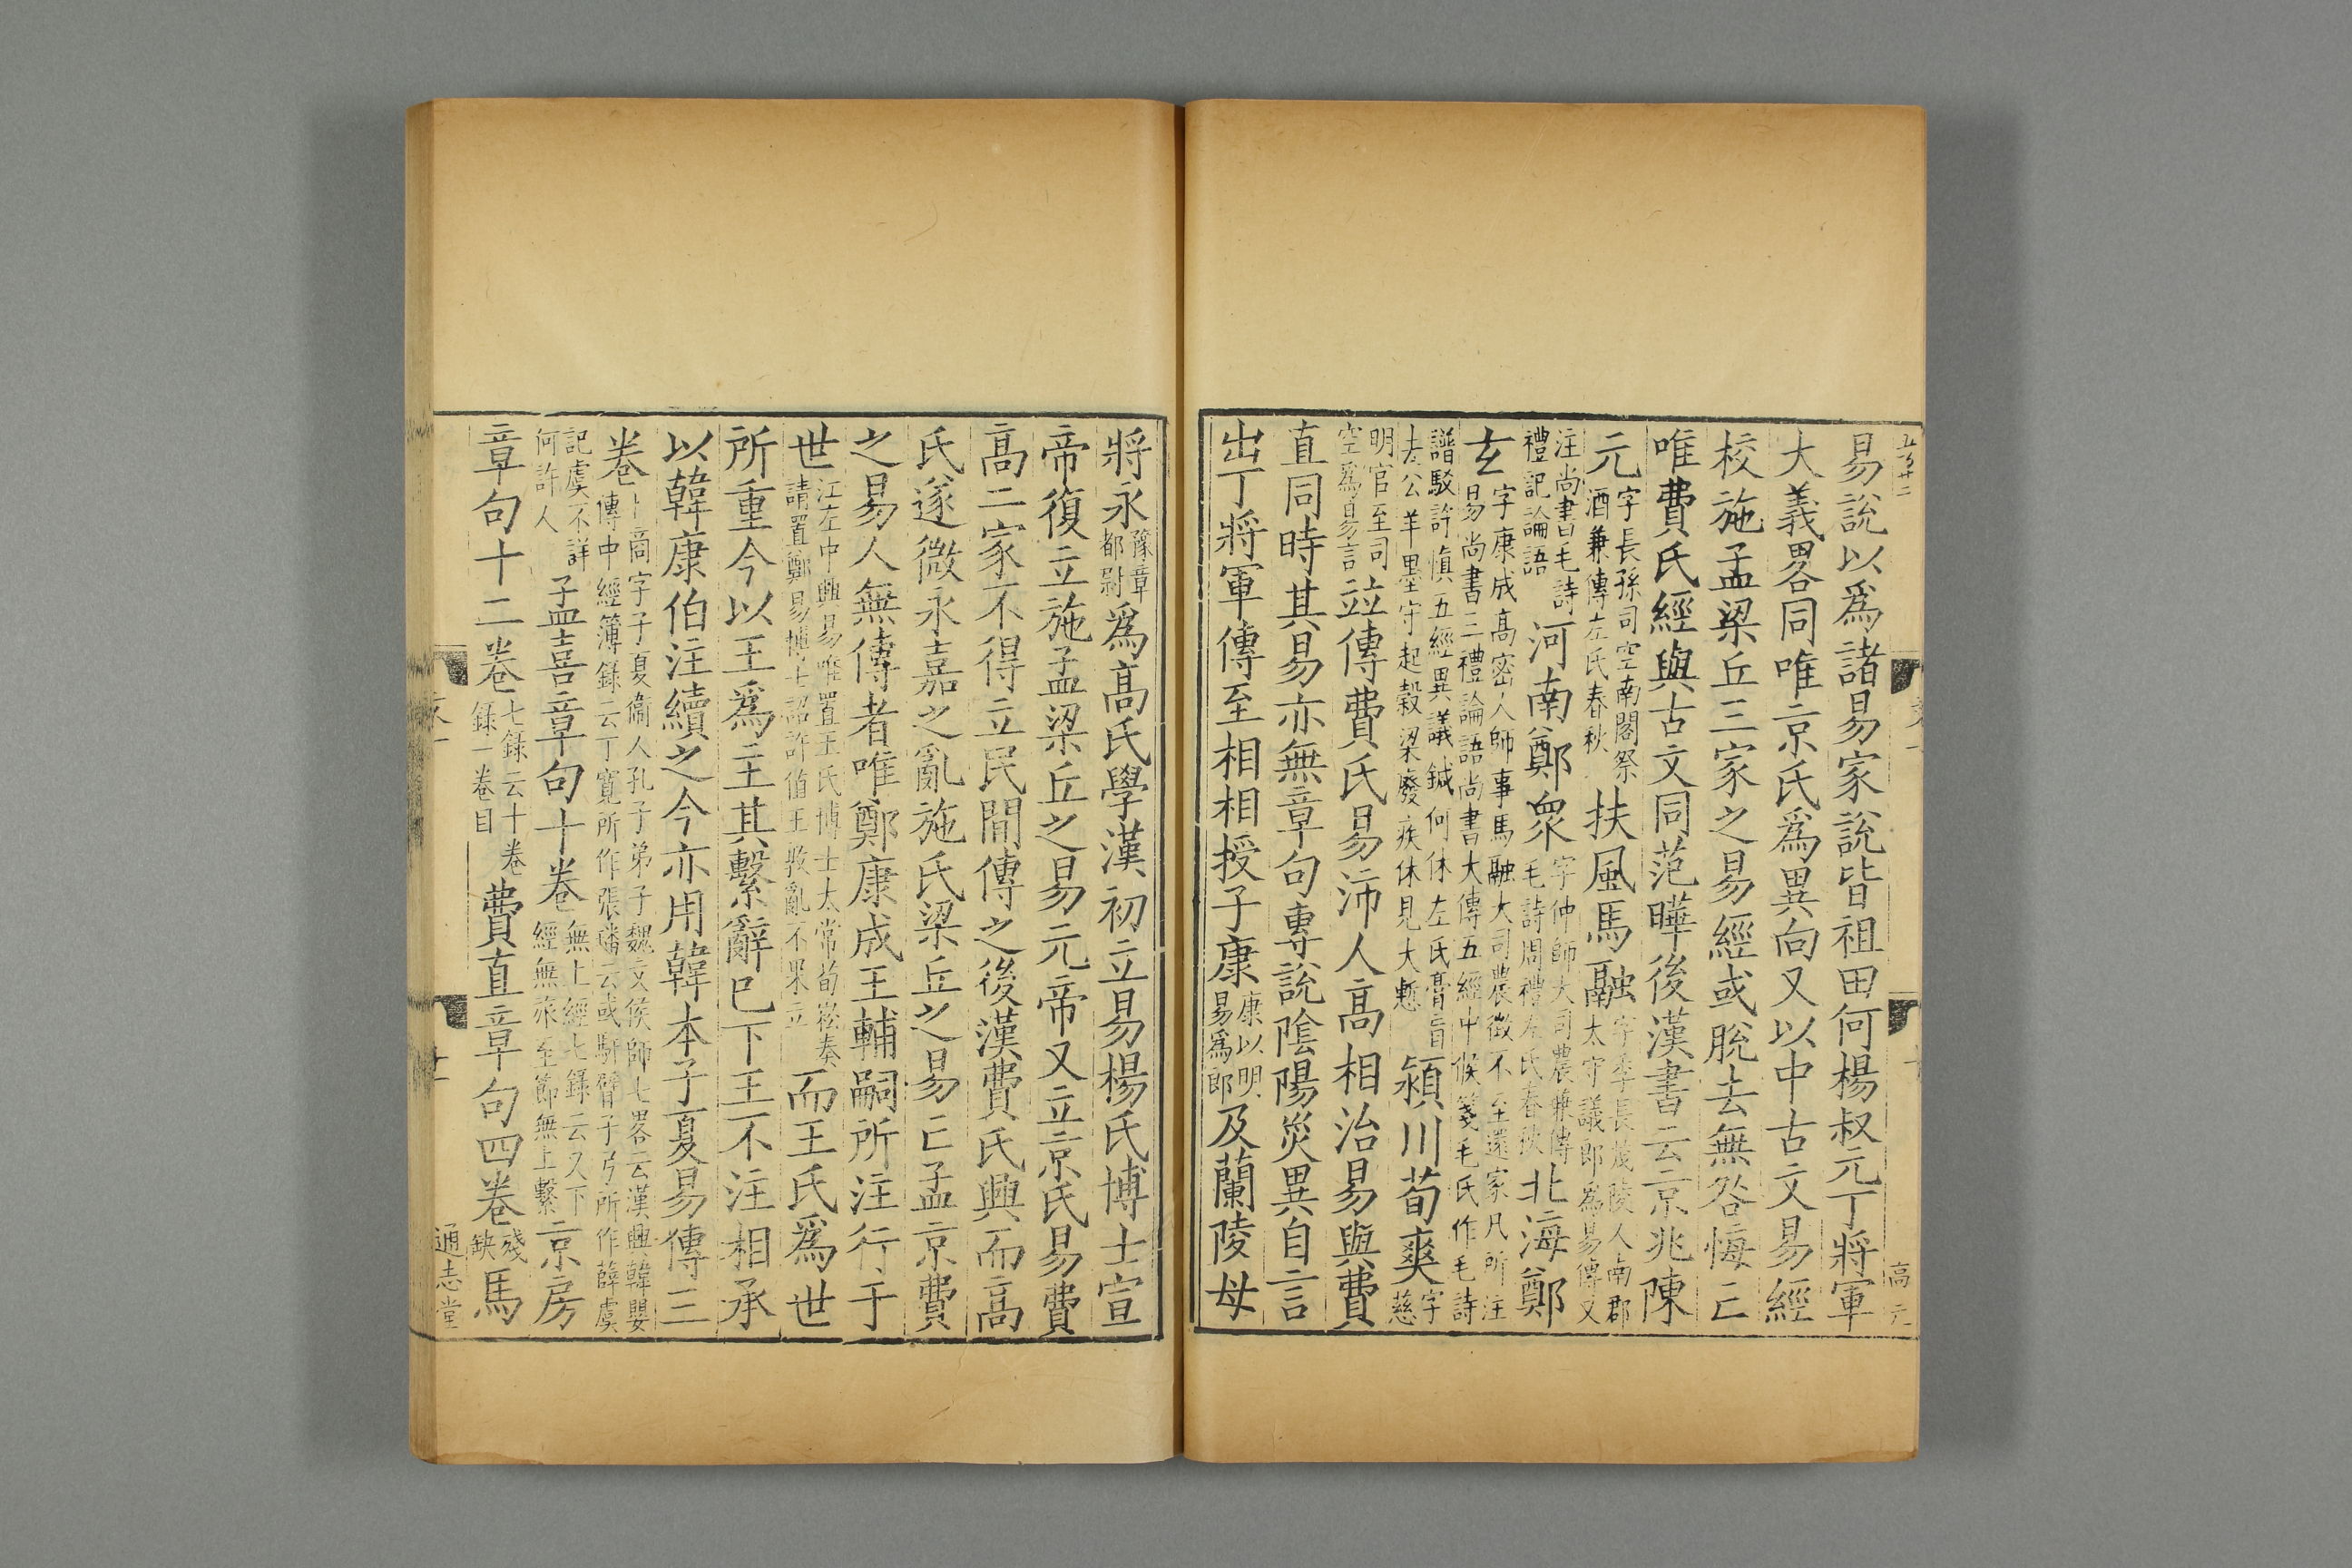 易說以爲諸易家說皆祖田何楊叔元丁將軍
大義畧同唯京氏爲異向又以中古文易經
校施孟梁丘三家之易經或脫去無咎悔亡
唯費氏經與古文同范曄後漢書云京兆陳
元字長孫司空南閣祭酒兼傳左氏春秋扶風馬融字季長茂陵人南郡太守議郎爲易傳又
注尚書毛詩禮記論語河南鄭眾字仲師大司農兼傳毛詩周禮左氏春秋北海鄭
玄字康成高密人師事馬融大司農徵不至還家凡所注易尚書三禮論語尚書大傳五經中候箋毛氏作毛詩
譜駁許慎五經異議鍼何休左氏膏盲去公羊墨守起穀梁廢疾休見大慙潁川荀爽字慈
明官至司空爲易言竝傳費氏易沛人高相治易與費
直同時其易亦無章句專說隂陽災異自言
出丁將軍傳至相相授子康康以明易爲郎及蘭陵母
高元
將永豫章都尉爲高氏學漢初立易楊氏博士宣
帝復立施孟梁丘之易元帝又立京氏易費
高二家不得立民間傳之後漢費氏興而高
氏遂微永嘉之亂施氏梁丘之易亡孟京費
之易人無傳者唯鄭康成王輔嗣所注行于
世江左中興易唯置王氏博士太常荀崧奏請置鄭易博士詔許值王敦亂不果立而王氏爲世
所重今以王爲主其繫辭巳下王不注相承
以韓康伯注續之今亦用韓本子夏易傳三
卷卜商字子夏衞人孔子弟子魏文侯師七畧云漢興韓嬰傳中經簿録云丁寬所作張璠云或馯臂子弓所作薛虞
記虞不詳何許人孟喜章句十卷無上經七録云又下經無旅至節無上繫京房
章句十二卷七録云十卷録一卷目費直章句四卷殘缺馬
通志堂